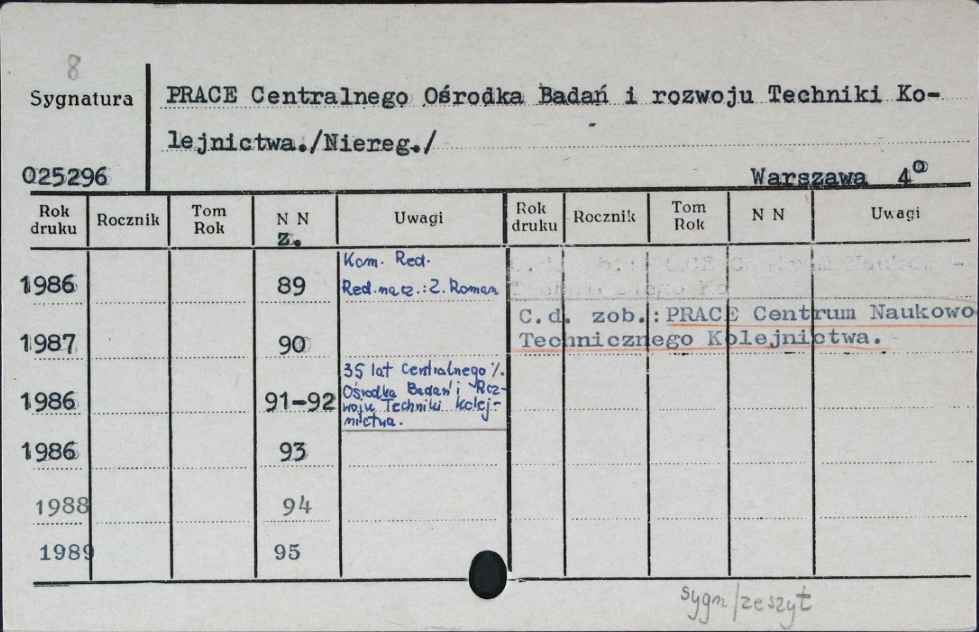 8
Sygnatura
PRACE Centralnego Ośrodka Badań i rozwoju Techniki Ko-
lejnictwa./Niereg./
025296
Warszawa 4º
Rok druku Rocznik Tom Rok N N z. Uwagi Rok druku Rocznik Tom Rok N N Uwagi
1986 89 Kom. Red.
Red. nacz.: Z. Roman
C.d. zob.: PRACE Centrum Naukowo
Technicznego Kolejnictwa.
1987 90
1986 91-92 35 lat Centralnego
Ośrodka Badań i Roz-
woju Techniki Kolej-
nictwa.
1986 93
1988 94
1989 95
sygn/zeszyt